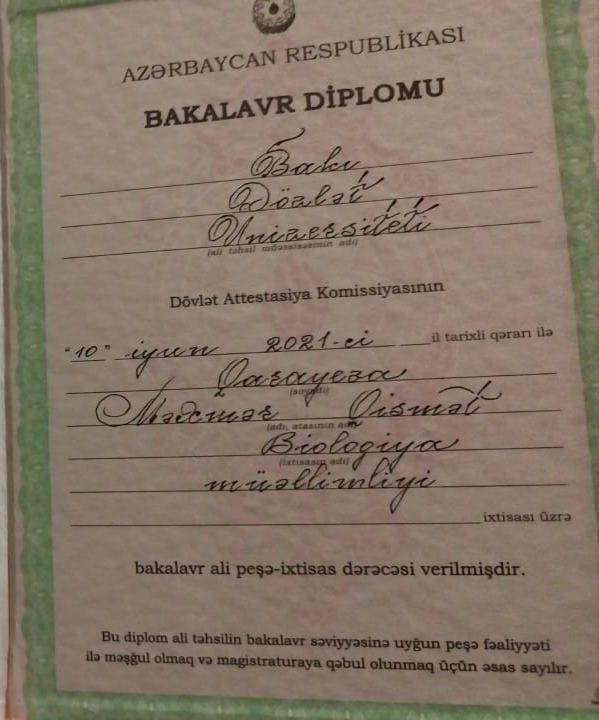 AZƏRBAYCAN RESPUBLİKASI
BAKALAVR DİPLOMU
Bakı
Dövlət
Universiteti
(ali təhsil müəssisəsinin adı)
Dövlət Attestasiya Komissiyasının
"10" iyun 2021-ci il tarixli qərarı ilə
Qarayeva
(soyadı)
Qismət
(adı, atasının adı)
Biologiya
(ixtisasın adı)
müəllimliyi
ixtisası üzrə
bakalavr ali peşə-ixtisas dərəcəsi verilmişdir.
Bu diplom ali təhsilin bakalavr səviyyəsinə uyğun peşə fəaliyyəti
ilə məşğul olmaq və magistraturaya qəbul olunmaq üçün əsas sayılır.